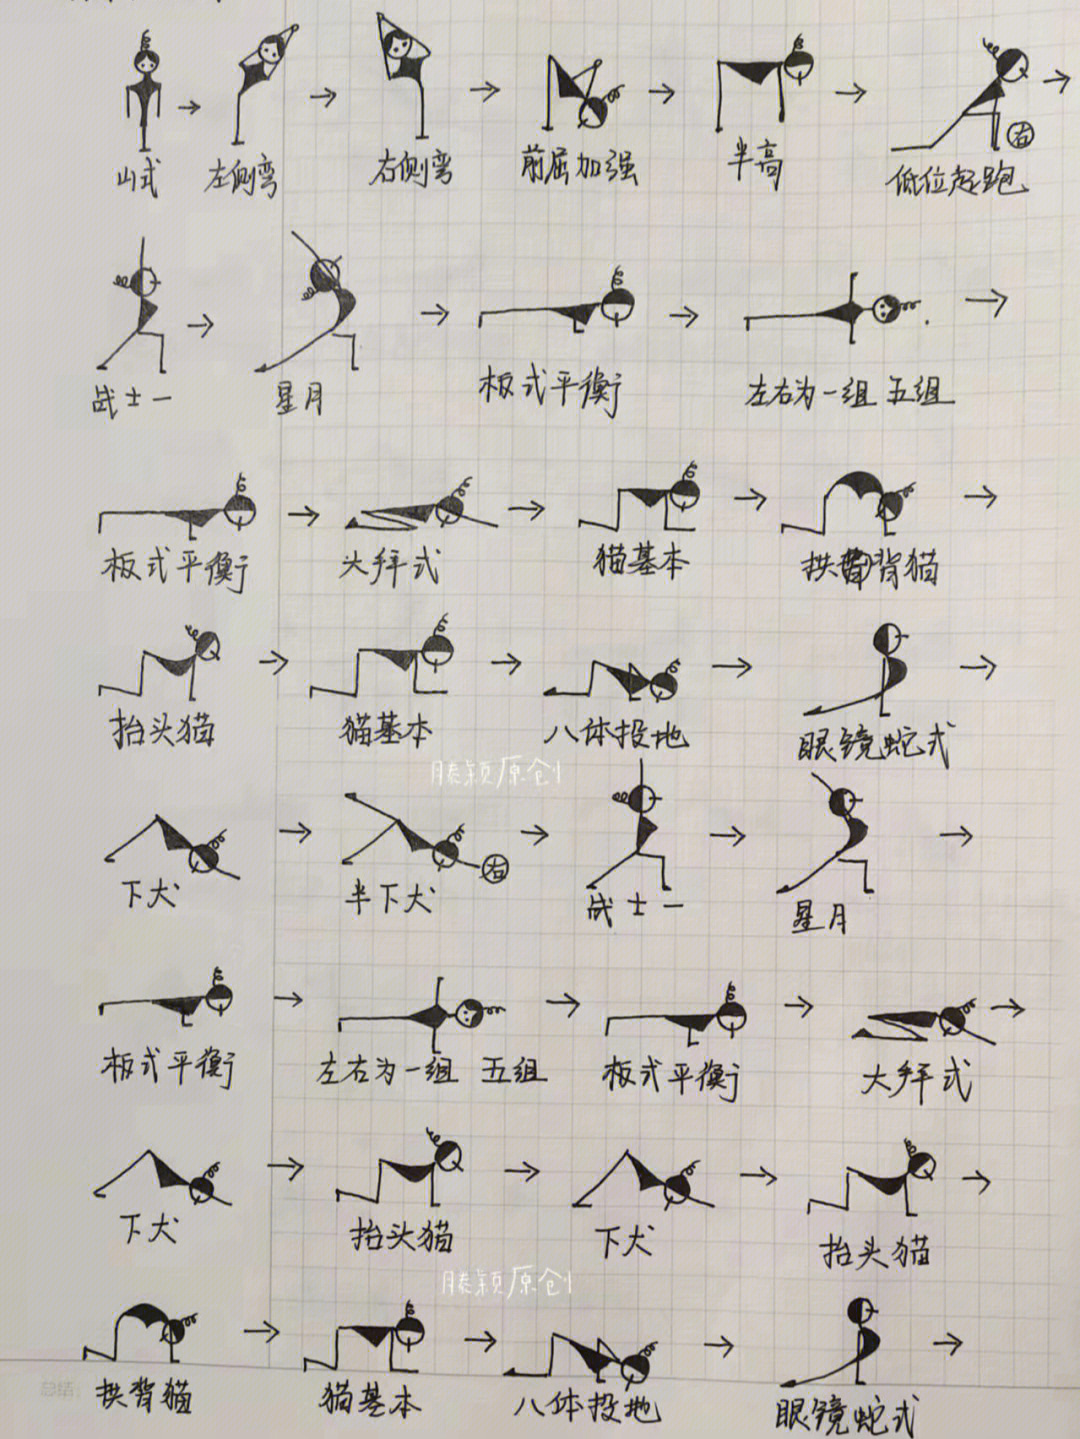 山式 左侧弯 右侧弯 前屈加强 半高 低位起跑 右
战士一 星月 板式平衡 左右为一组 五组
板式平衡 大拜式 猫基本 拱背猫
抬头猫 猫基本 八体投地 眼镜蛇式
滕颖原创
下犬 半下犬 右 战士一 星月
板式平衡 左右为一组 五组 板式平衡 大拜式
下犬 抬头猫 下犬 抬头猫
滕颖原创
总结:
拱背猫 猫基本 八体投地 眼镜蛇式